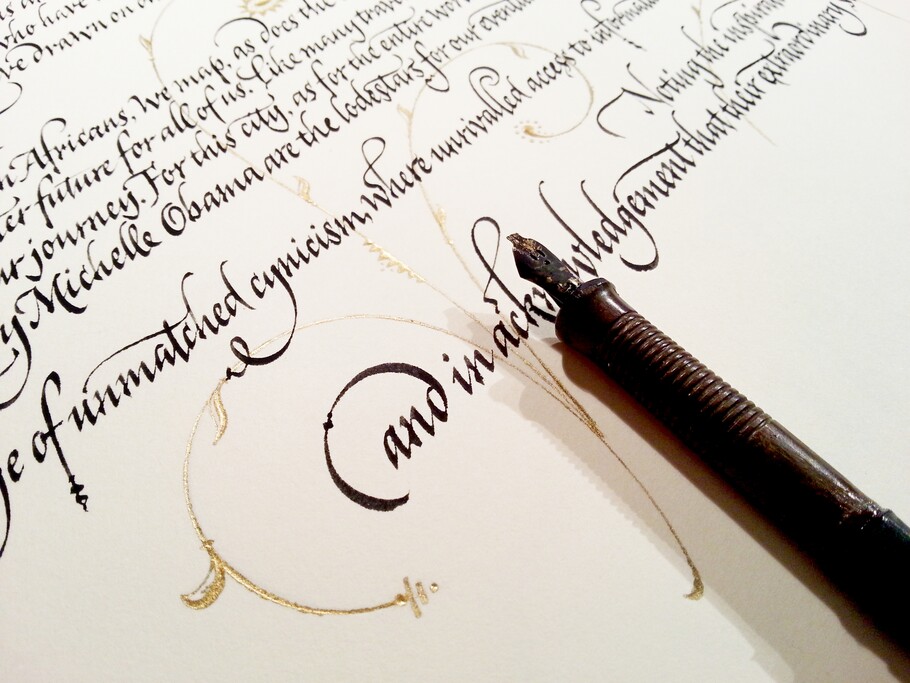 who have
ve drawn on a
n Africans. We map, as does the
ter future for all of us. Like many trave
ur journey. For this city, as for the entire wor
y Michelle Obama are the lodestars for our creati
ge of unmatched cynicism, where unrivalled access to informati
Noting the inspirati
and in acknowledgement that their extraordinary